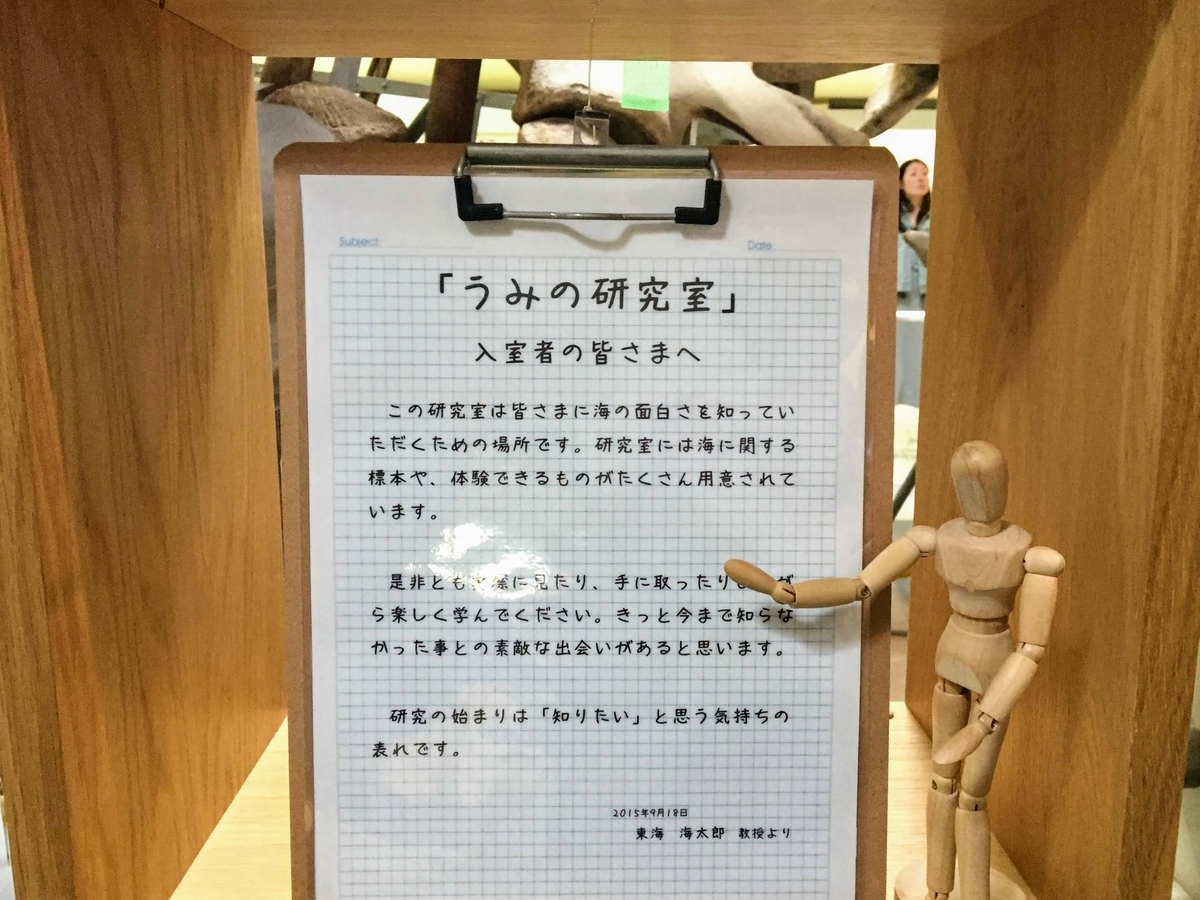 Subject:
Date:
「うみの研究室」
入室者の皆さまへ
この研究室は皆さまに海の面白さを知ってい
ただくための場所です。研究室には海に関する
標本や、体験できるものがたくさん用意されて
います。
是非とも実際に見たり、手に取ったり
ら楽しく学んでください。きっと今まで知らな
かった事との素敵な出会いがあると思います。
研究の始まりは「知りたい」と思う気持ちの
表れです。
2015年9月18日
東海 海太郎 教授より